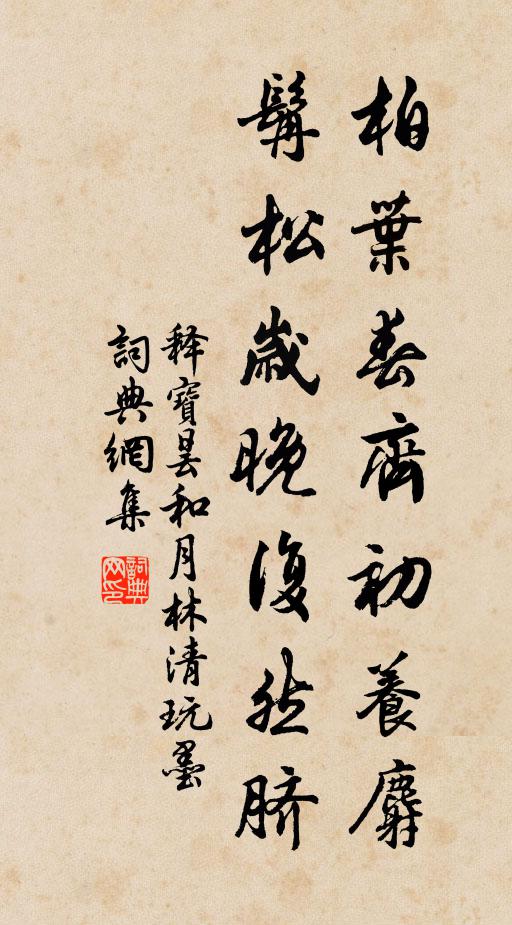 柏葉春齊初養麝
髯松歲晚復然臍
释寶曇和月林清玩墨
詞典網集
詞典网印